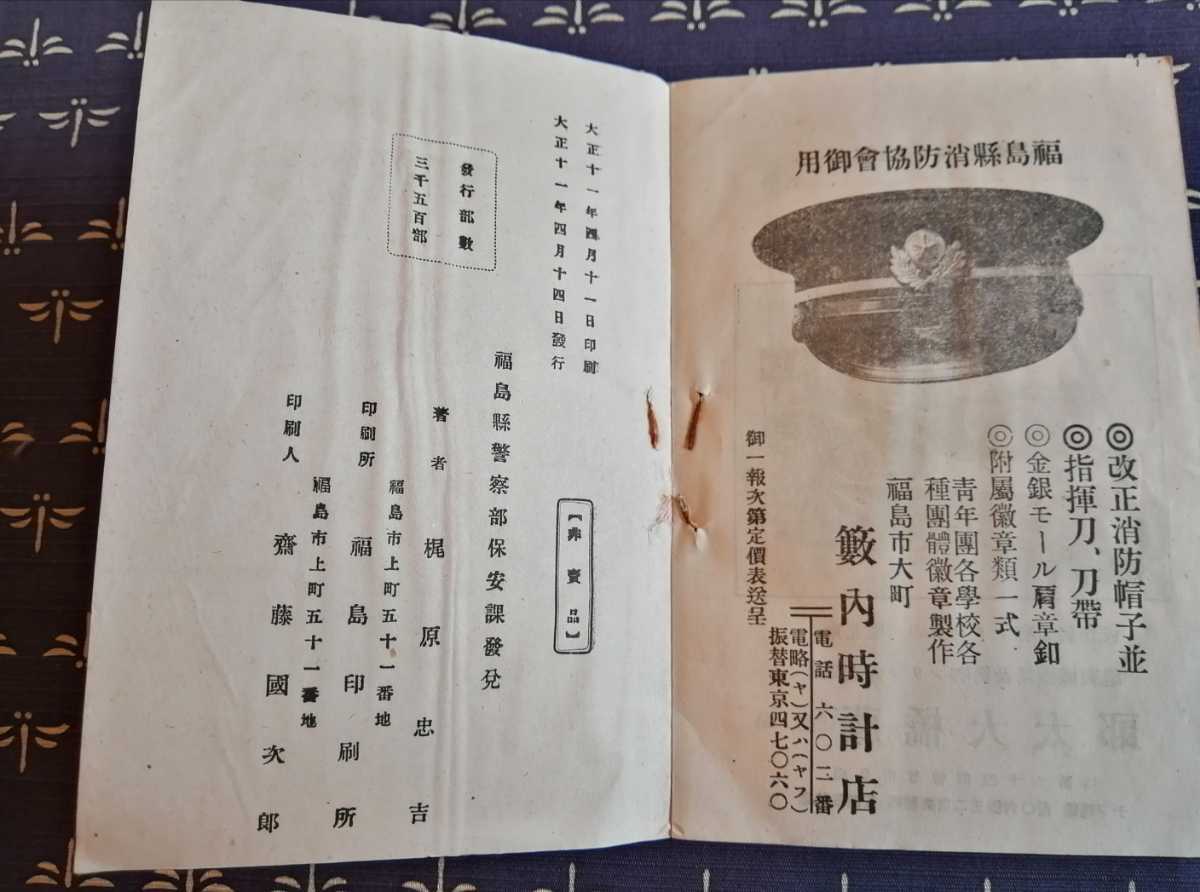 福島縣消防協會御用
◎改正消防帽子並
◎指揮刀、刀帶
◎金銀モール肩章釦
◎附屬徽章類一式
靑年團各學校各
種團體徽章製作
福島市大町
籔內時計店
電話六〇二番
電略(ヤ)又ハ(ヤブ)
振替東京四七〇六〇
御一報次第定價表送呈
大正十一年四月十一日印刷
大正十一年四月十四日發行
發行部數
三千五百部
【非賣品】
福島縣警察部保安課發兌
著者 梶原忠吉
福島市上町五十一番地
印刷所 福島印刷所
福島市上町五十一番地
印刷人 齋藤國次郎